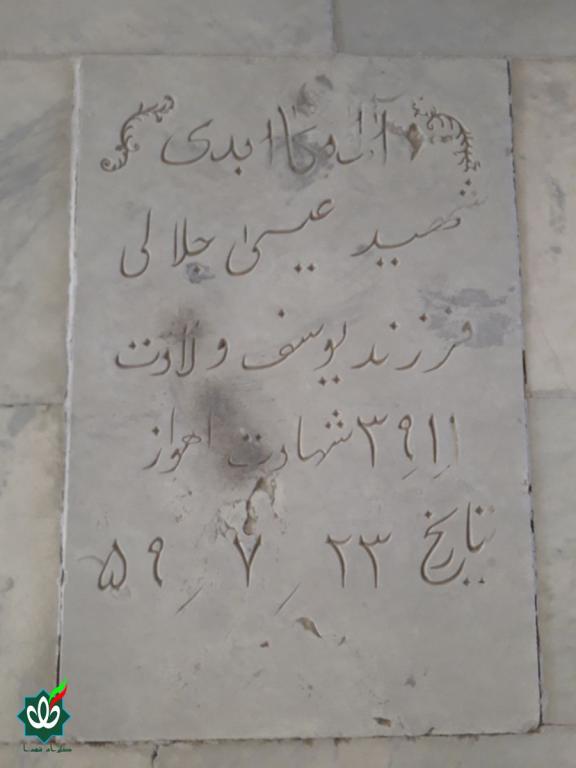 آرامگاه ابدی
شهید عیسی جلالی
فرزند یوسف ولادت
۳۹٫۱٫۱ شهادت اهواز
تاریخ ۲۳٫۷٫۵۹